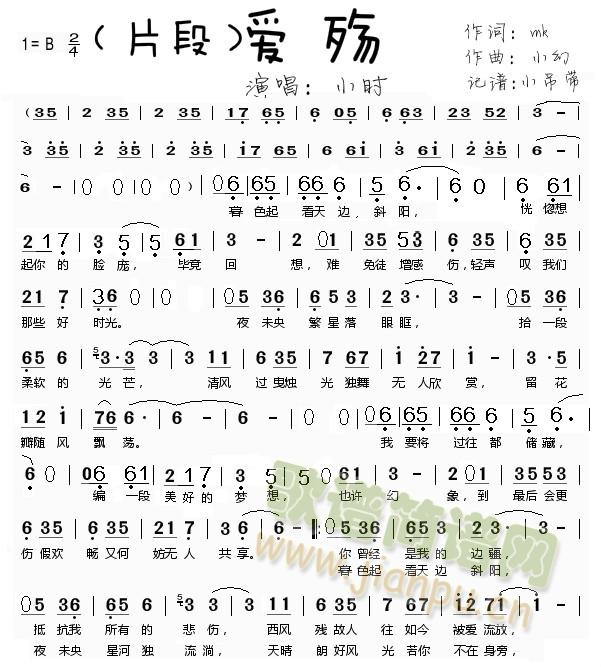 1= B 2/4 （片段）爱 殇
作词：mk
作曲：小幻
演唱：小时
记谱：小吊带
（ 35 | 2 35 | 2 35 | 17 65 | 6 05 | 6 63 | 23 12 | 3 - |
3 35 | 2 35 | 2 35 | 17 65 | 6 6i | 3 12 | 17 35 | 6 - |
6 - | 0 0 | 0 0 ）| 06 65 | 66 6 | 5 6. | 6 0 | 6 61 |
暮 色起 看天 边， 斜 阳， 恍 惚想
2 17 | 3 5 | 5 61 | 3 - | 2 01 | 35 53 | 6 35 | 235 |
起你 的 脸 庞， 毕竟 回 想，难 免徒 增感 伤，轻声 叹我们
21 7 | 36 0 | 0 | 05 36 | 535 6 | 23. | 3 0 | 05 36 |
那些 好 时光。 夜 未央 繁星 落 眼 眶， 拾 一段
65 6 | 3.3 | 3 3 | 3 11 | 6 35 | 6 67 | i 27 | i - | 3.5 |
柔软 的 光 芒， 清风 过 曳烛 光 独舞 无 人欣 赏， 留 花
12 i | 76 6. | 6 - | 6 - | 0 0 | 06 65 | 656 6 | 5 6. |
瓣随 风 飘 荡。 我 要将 过往 都 储 藏，
6 0 | 06 61 | 217 | 3 5 | 0 61 | 3 - | 201 | 3553 |
编 一段 美好 的 梦 想， 也许 幻 象，到 最后会更
6 35 | 6 35 | 217 | 3 6 | 6 - |: 05 36 | 656 | 23. | 3 0 |
伤 假欢 畅 又何 妨无 人 共 享。 你 曾经 是我 的 边 疆，
暮 色起 看天 边 斜 阳，
05 36 | 656 | 3 3 | 3 11 | 6 35 | 6 67 | i2 7i | i 0 |
抵 抗我 所有 的 悲 伤， 西风 残 故人 往 如今 被爱 流放，
夜 未央 星河 独 流 淌， 天晴 朗 好风 光 若你 不在 身旁，
歌谱简谱网
www.jianpu.cn